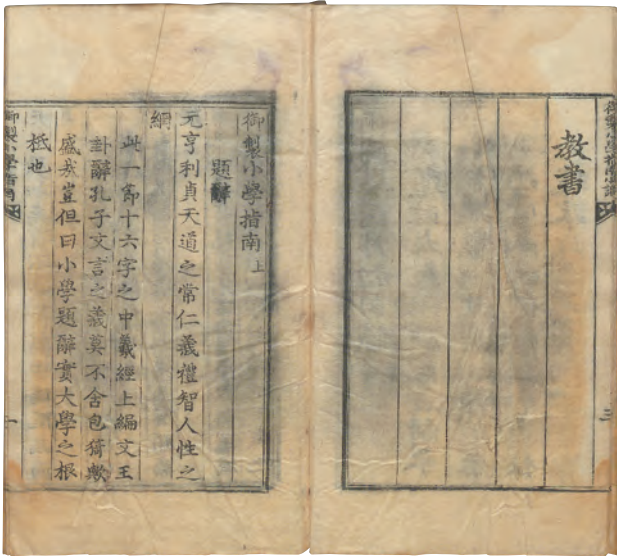 三
教書
御製小學指南上
題辭
元亨利貞天道之常仁義禮智人性之
綱
此一節十六字之中羲經上編文王
卦辭孔子文言之義莫不含包猗歟
盛哉豈但曰小學題辭實大學之根
柢也
御製小學指南
一